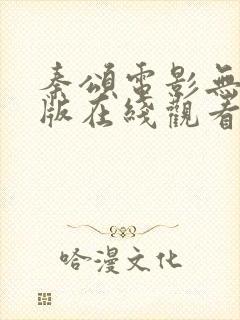 秦頌電影無
版在綫觀看
哈漫文化